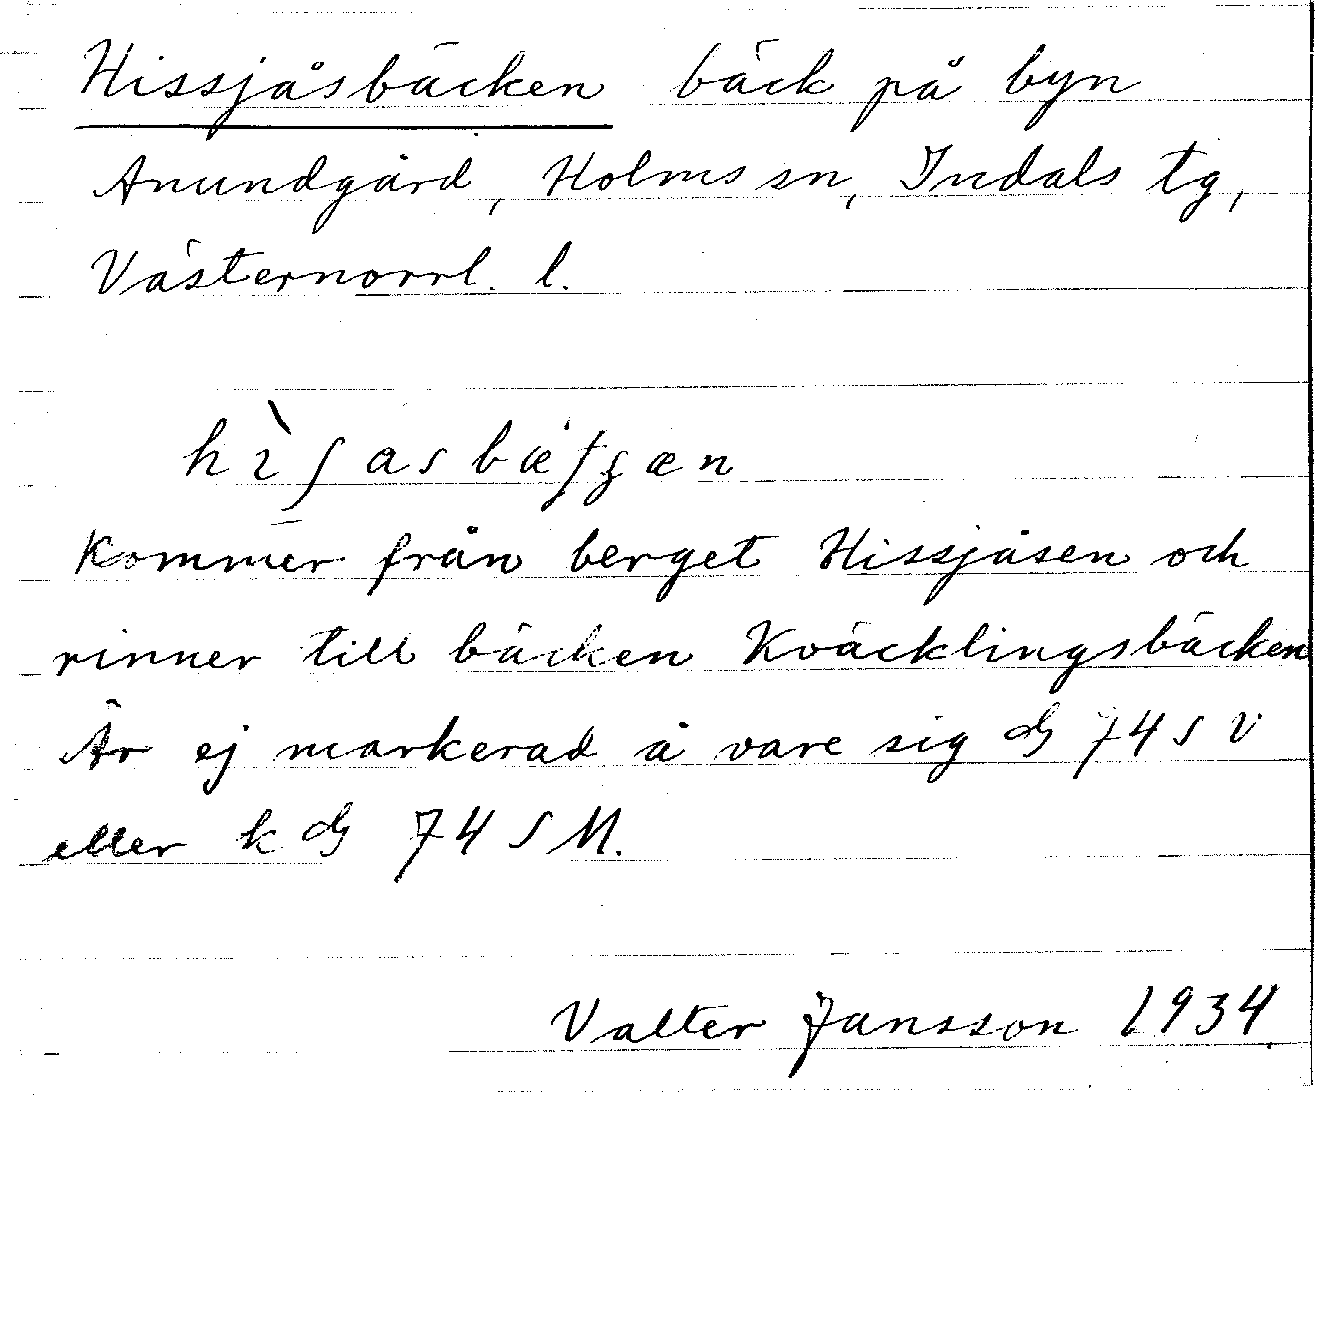 Hissjåsbäcken bäck på byn
Anundgård, Holms sn, Indals tg,
Västernorrl. l.
kommer från berget Hissjåsen och
rinner till bäcken Kväcklingsbäcken
Är ej markerad å vare sig 74 S V
eller k 74 S M.
Valter Jansson 1934.